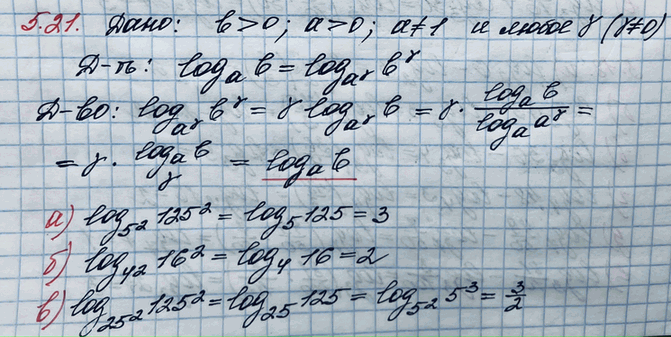 5.21. Дано: b>0; a>0; a≠1 и любое γ (γ≠0)
Д-ть: logₐ b = log_{a^γ} b^γ
Д-во: log_{a^γ} b^γ = γ log_{a^γ} b = γ · \frac{logₐ b}{logₐ a^γ} =
= γ · \frac{logₐ b}{γ} = logₐ b
а) log_{5²} 125² = log₅ 125 = 3
б) log_{4²} 16² = log₄ 16 = 2
в) log_{25²} 125² = log₂₅ 125 = log_{5²} 5³ = \frac{3}{2}